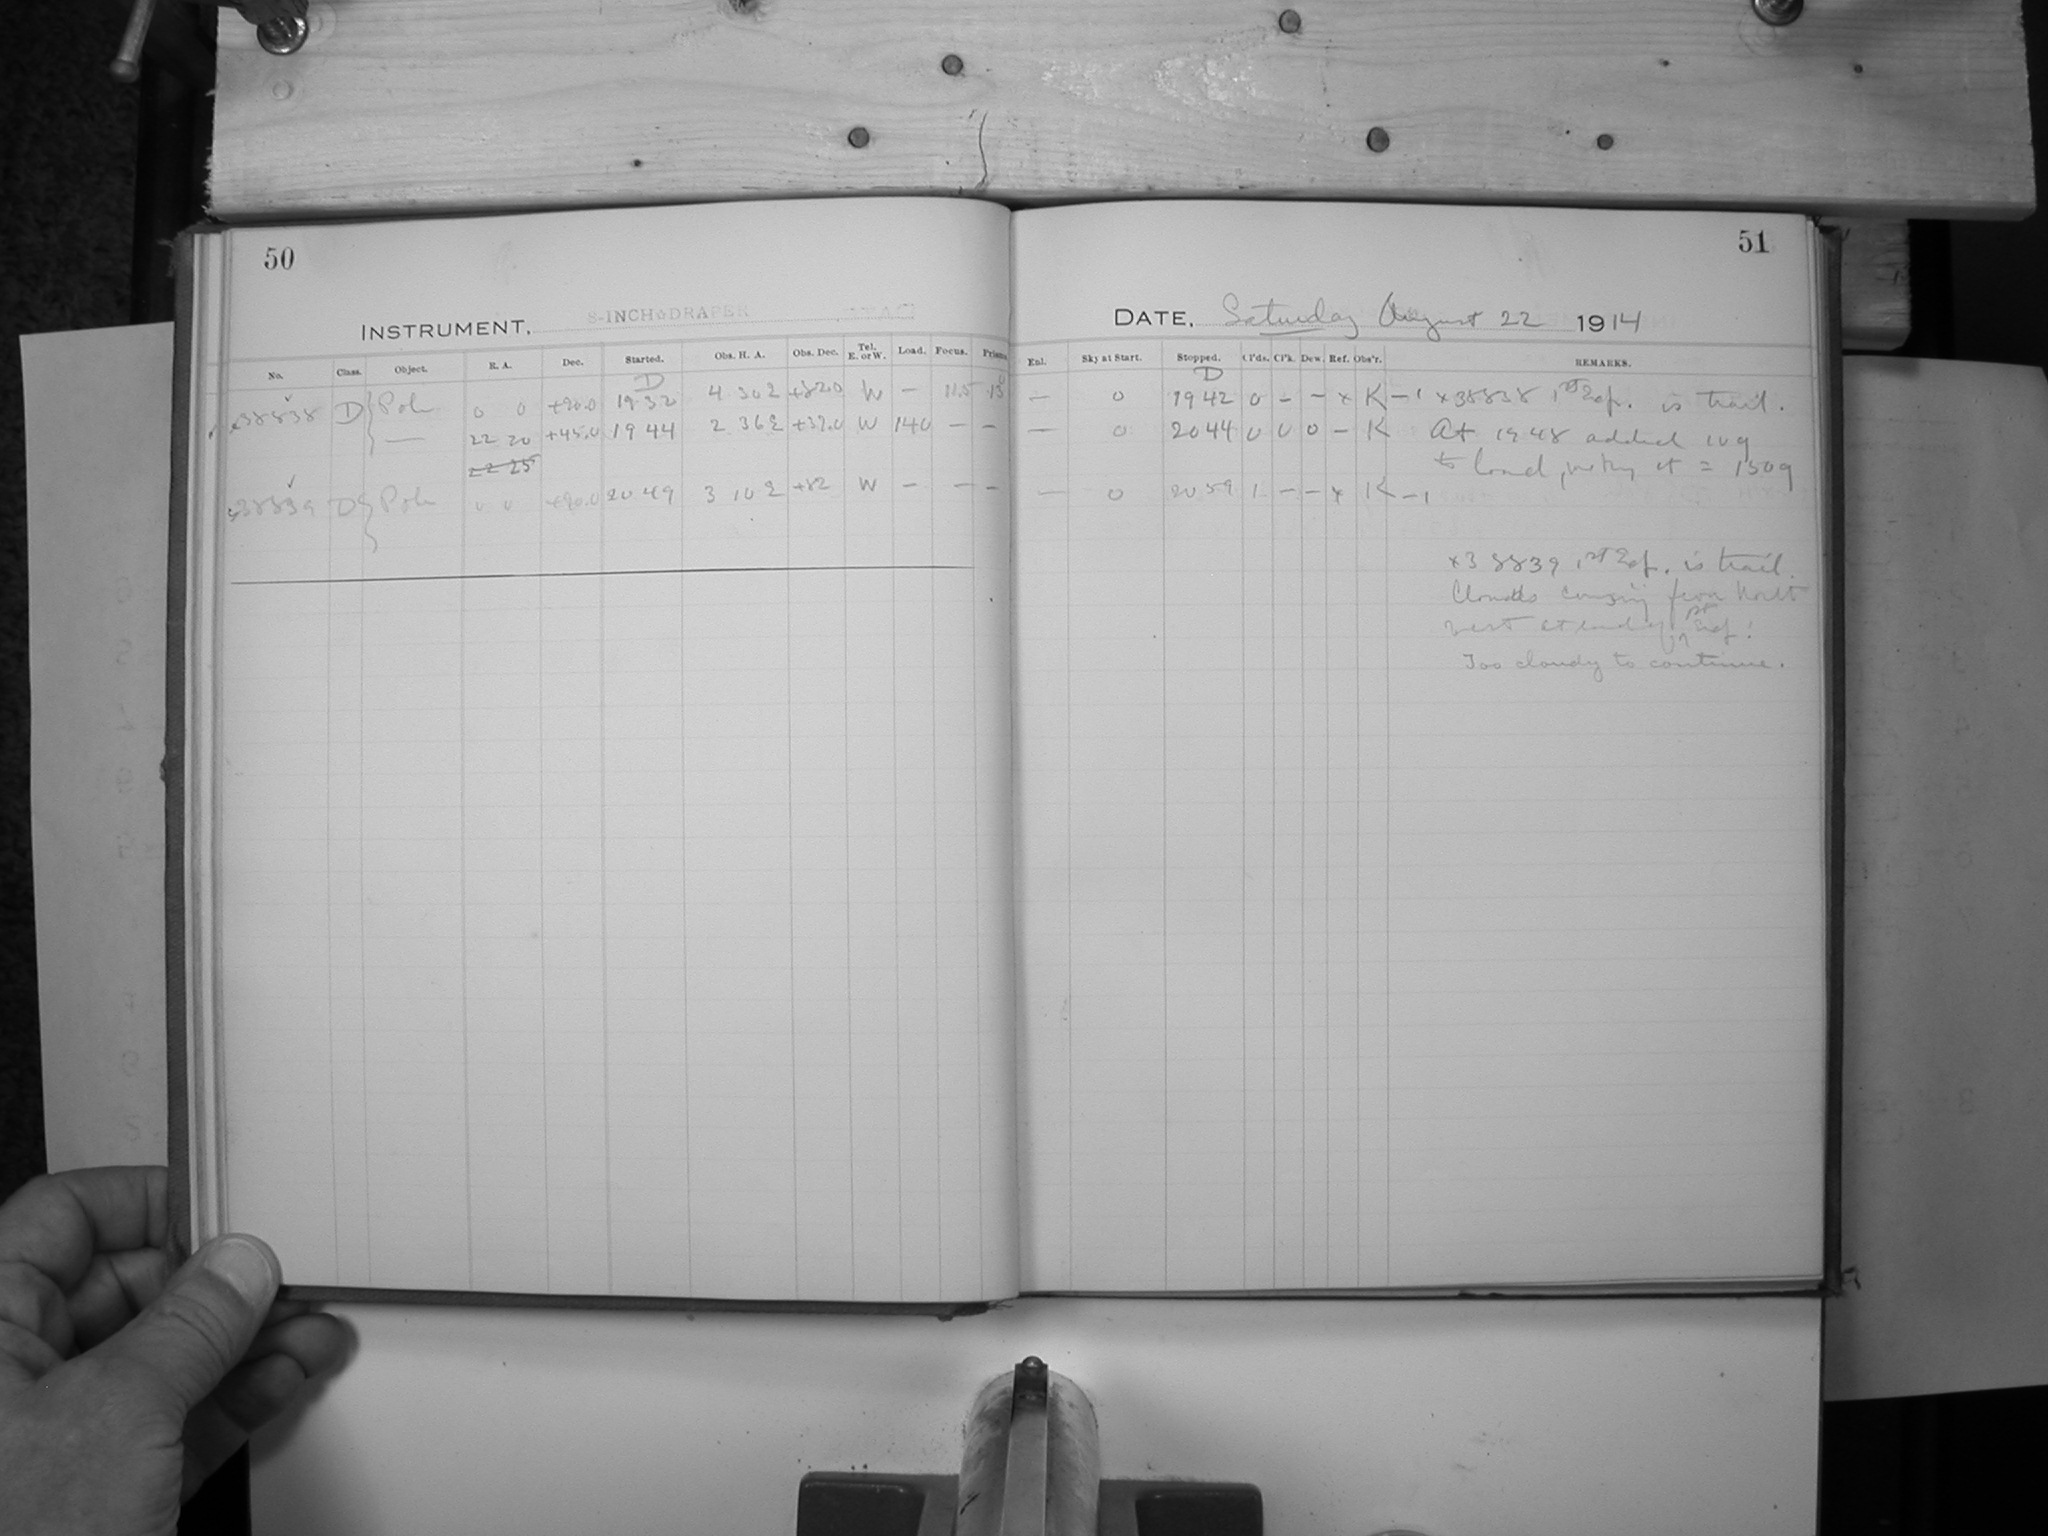 50
INSTRUMENT, 8-INCH DRAPER
No. Class. Object. R. A. Dec. Started. Obs. H. A. Obs. Dec. Tel. E. or W. Load. Focus. Prisms
D
38838 D Pole 0 0 +90.0 19 32 4 30 2 +82.0 W – 11.5 13
— 22 20 +45.0 19 44 2 36 2 +37.0 W 140 – –
22 25
38839 D Pole 0 0 +90.0 20 49 3 10 2 +82 W – – –
51
DATE, Saturday August 22 1914
Enl. Sky at Start. Stopped. Cl'ds. Cl'k. Dew. Ref. Obs'r. REMARKS.
D
— 0 19 42 0 – – x K – 1 x38838 1st Exp. is trail.
— 0 20 44 0 0 0 – K At 19 48 added 10g
to load, making it = 150g
— 0 20 59 1 – – x K – 1
x38839 1st Exp. is trail.
Clouds coming from North
west at end of 1st Exp!
Too cloudy to continue.